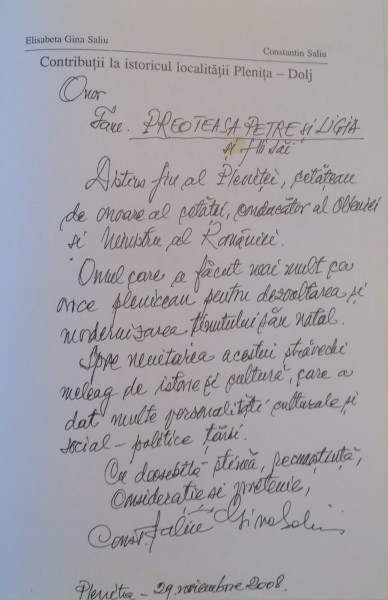 Elisabeta Gina Saliu
Constantin Saliu
Contribuții la istoricul localității Plenița – Dolj
Onor
Fam. PREOTEASA PETRE ȘI LIGIA
și fiii săi
Distins fiu al Pleniței, cetățean
de onoare al cetății, conducător al Olteniei
și Ministru al României.
Omul care a făcut mai mult ca
orice plenicean pentru dezvoltarea și
modernizarea ținutului său natal.
Spre neuitarea acestui străvechi
meleag de istorie și cultură, care a
dat multe personalități culturale și
social – politice țării.
Cu deosebită stimă, recunoștință,
Considerație și prietenie,
Const. Saliu Gina Saliu
Plenița – 29 noiembrie 2008.